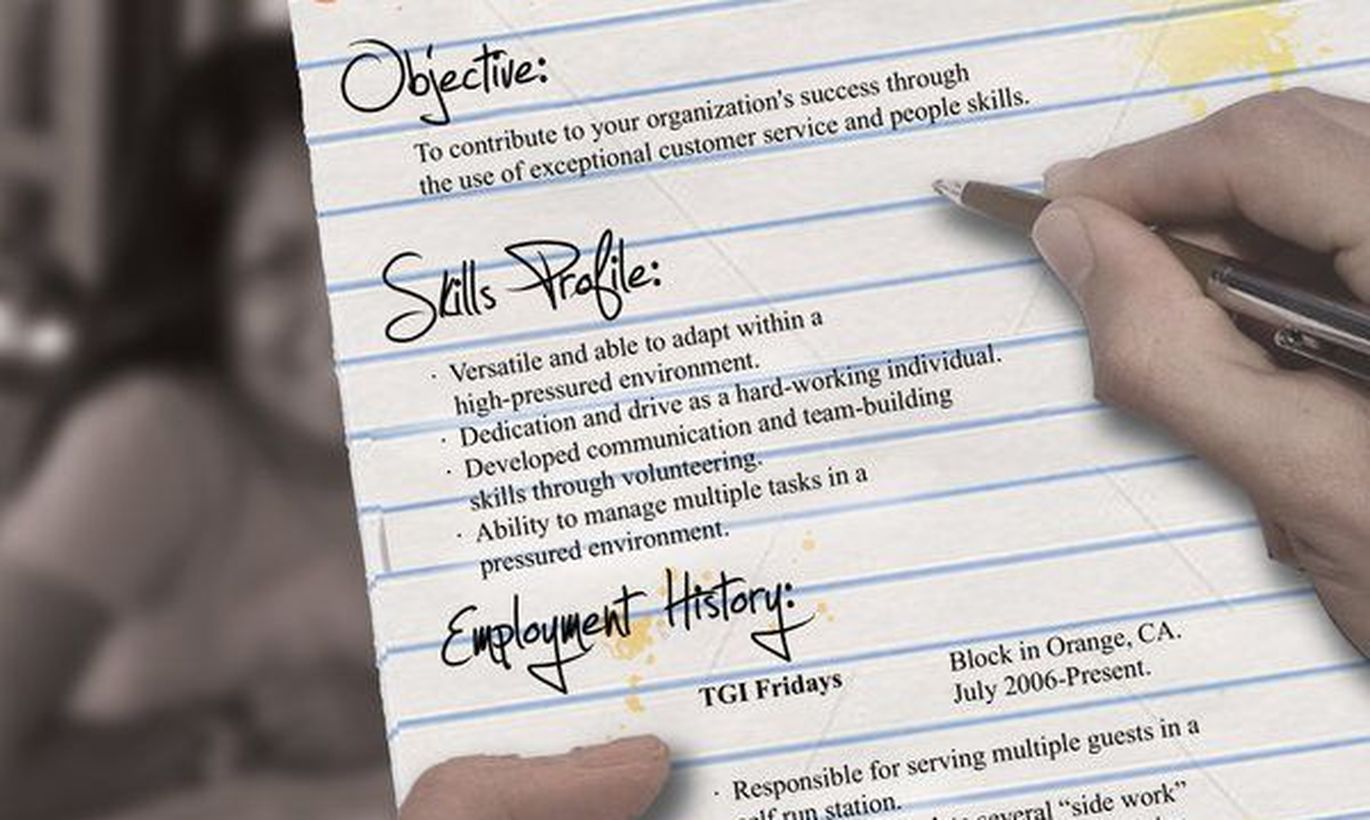 Objective:
To contribute to your organization's success through
the use of exceptional customer service and people skills.
Skills Profile:
· Versatile and able to adapt within a
high-pressured environment.
· Dedication and drive as a hard-working individual.
· Developed communication and team-building
skills through volunteering.
· Ability to manage multiple tasks in a
pressured environment.
Employment History:
TGI Fridays
Block in Orange, CA.
July 2006-Present.
· Responsible for serving multiple guests in a
run station.
several “side work”